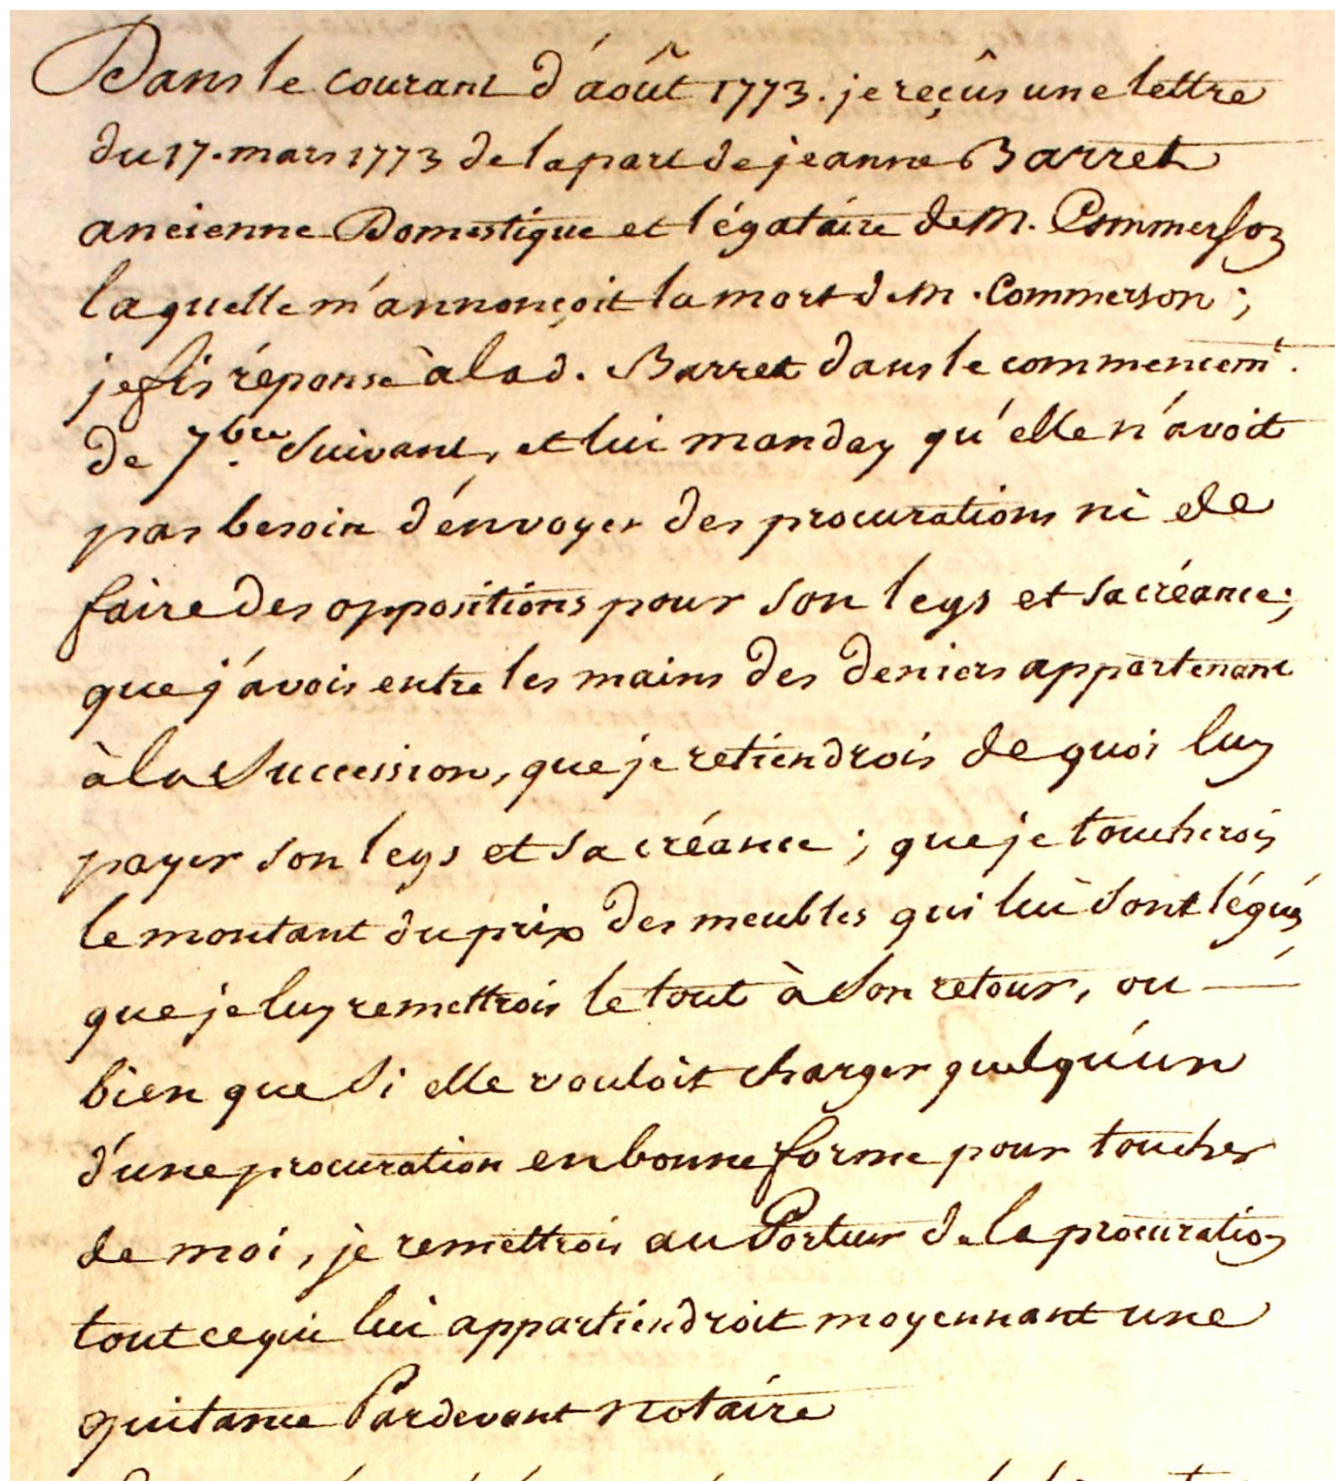 Dans le courant d'août 1773. je reçûs une lettre
du 17. mars 1773 de la part de jeanne Barret
ancienne Domestique et légataire de M. Commerson
laquelle m'annonçoit la mort de M. Commerson ;
je fis réponse à lad. Barret dans le commencem.t
de 7.bre Suivant, et lui manday qu'elle n'avoit
pas besoin d'énvoyer des procurations ni de
faire des oppositions pour son legs et sa créance ;
que j'avois entre les mains des deniers appartenant
à la Succession, que je retiendrois de quoi luy
payer son legs et sa créance ; que je toucherois
le montant du prix des meubles qui lui sont légués
que je luy remettrois le tout à son retour, ou —
bien que Si elle vouloit charger quelqu'un
d'une procuration en bonne forme pour toucher
de moi, je remettrois au Porteur de la procuration
tout ce qui lui appartiendroit moyennant une
quitance Pardevant Notaire